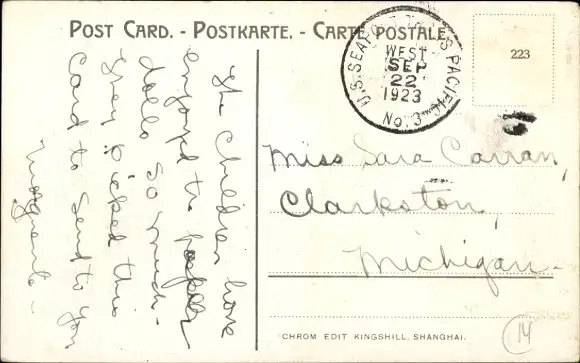 POST CARD. - POSTKARTE. - CARTE POSTALE.
U.S. SEAPOST TRANS PACIFIC
WEST
SEP
22
1923
No. 3
223
The Children have
enjoyed the paper
dolls so much -
They picked this
Card to send to you
Miss Sara Carran,
Clarkston,
Michigan -
CHROM EDIT KINGSHILL, SHANGHAI.
14